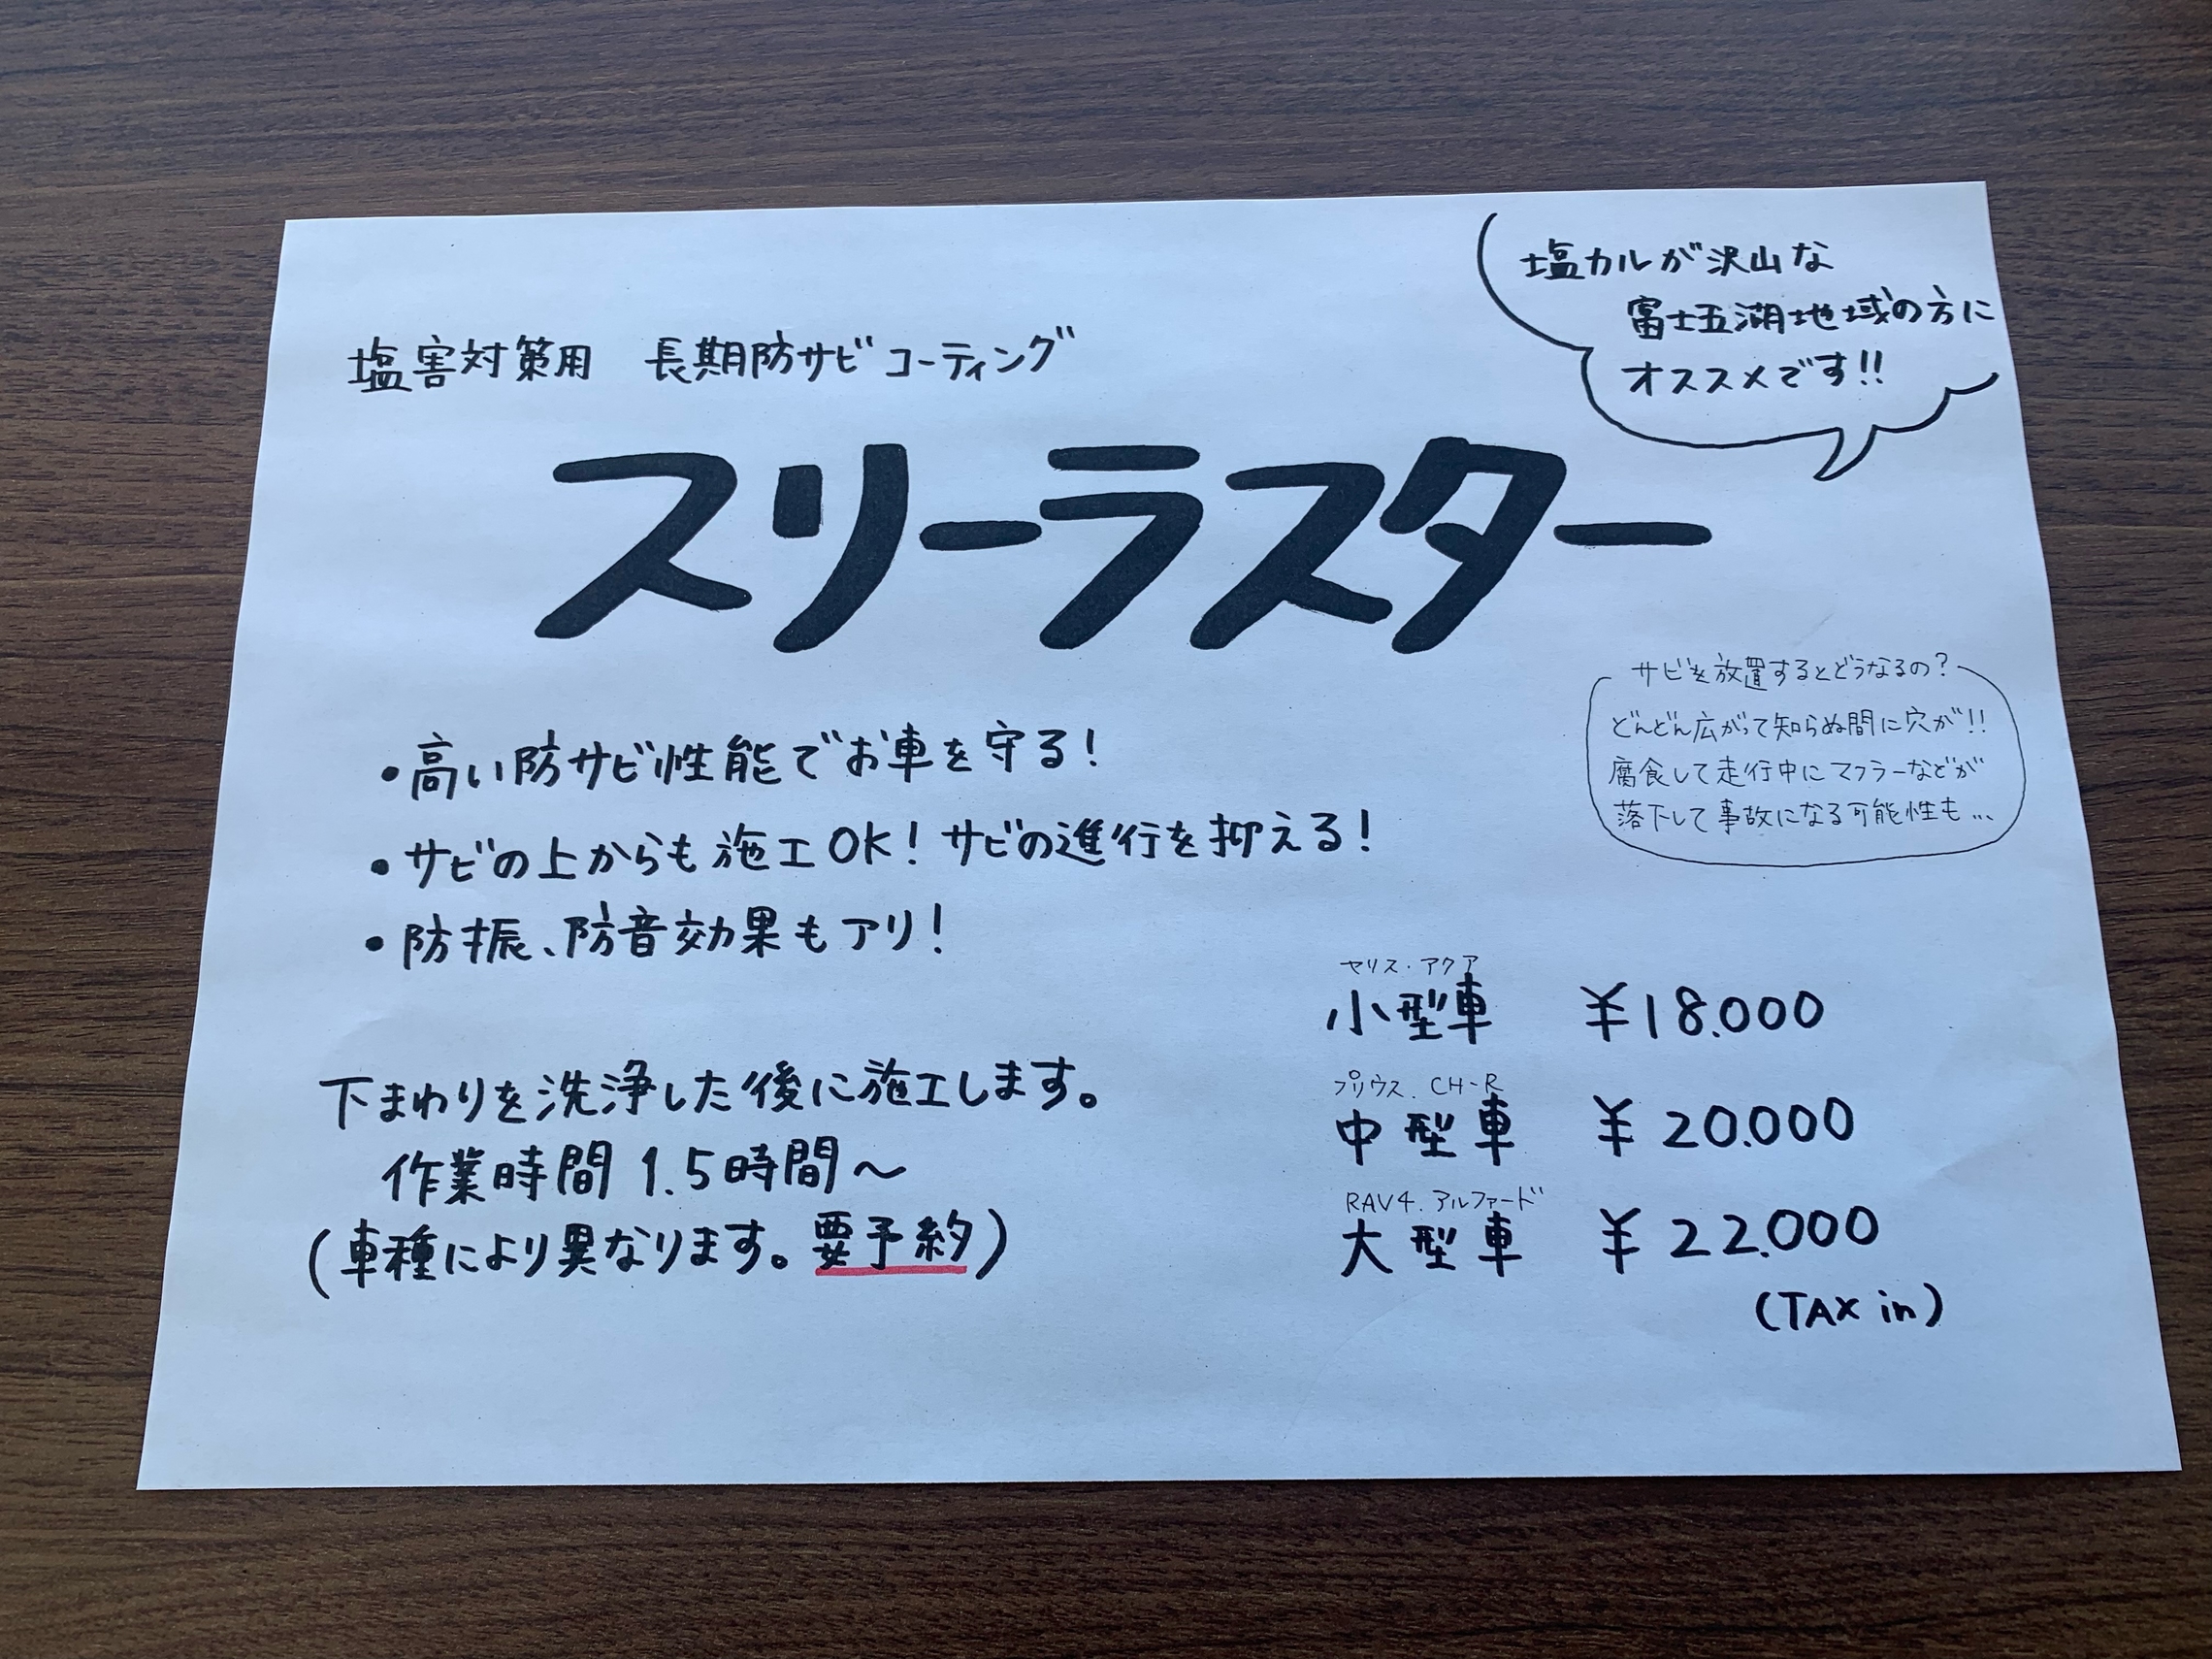 塩カルが沢山な
富士五湖地域の方に
オススメです!!
塩害対策用 長期防サビコーティング
スリーラスター
サビを放置するとどうなるの?
どんどん広がって知らぬ間に穴が!!
腐食して走行中にマフラーなどが
落下して事故になる可能性も...
・高い防サビ性能でお車を守る!
・サビの上からも施工OK!サビの進行を抑える!
・防振、防音効果もアリ!
下まわりを洗浄した後に施工します。
作業時間 1.5時間~
(車種により異なります。要予約)
ヤリス・アクア
小型車 ¥18.000
プリウス. CH-R
中型車 ¥20.000
RAV4. アルファード
大型車 ¥22.000
(TAX in)